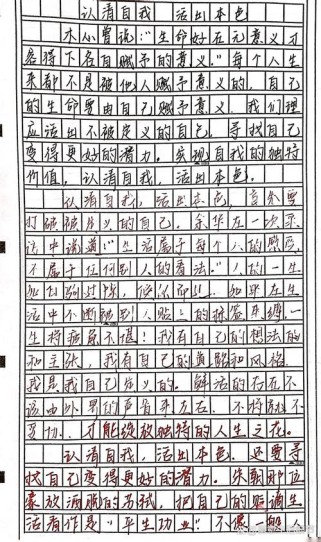 认清自我 活出本色
木心曾说:“生命好在无意义,才
容得下各自赋予的意义。”每个人生
来都不是被他人赋予意义的,自己
的生命要由自己赋予意义,我们理
应活出不被定义的自己,寻找自己
变得更好的潜力。实现自我的独特
价值。认清自我,活出本色。
认清自我,活出本色,首先要
打破被定义的自己。余华在一次采
访中谈道:“生活属于每个人的感受,
不属于任何别人的看法。”人的一生
如白驹过隙,倏忽而已,如果在生
活中不断被别人贴上的标签束缚,一
生将疲惫不堪!我有自己的想法的
和主张,我有自己的道路和风格
我是我自己定义的。鲜活的存在不
该由外界的声音来左右。不将就不
妥协,才能绽放独特的人生之花。
认清自我,活出本色,还要寻
找自己变得更好的潜力。朱熹那位
豪放洒脱的苏轼,把自己的贬谪生
活看作是“平生功业”不像一般士